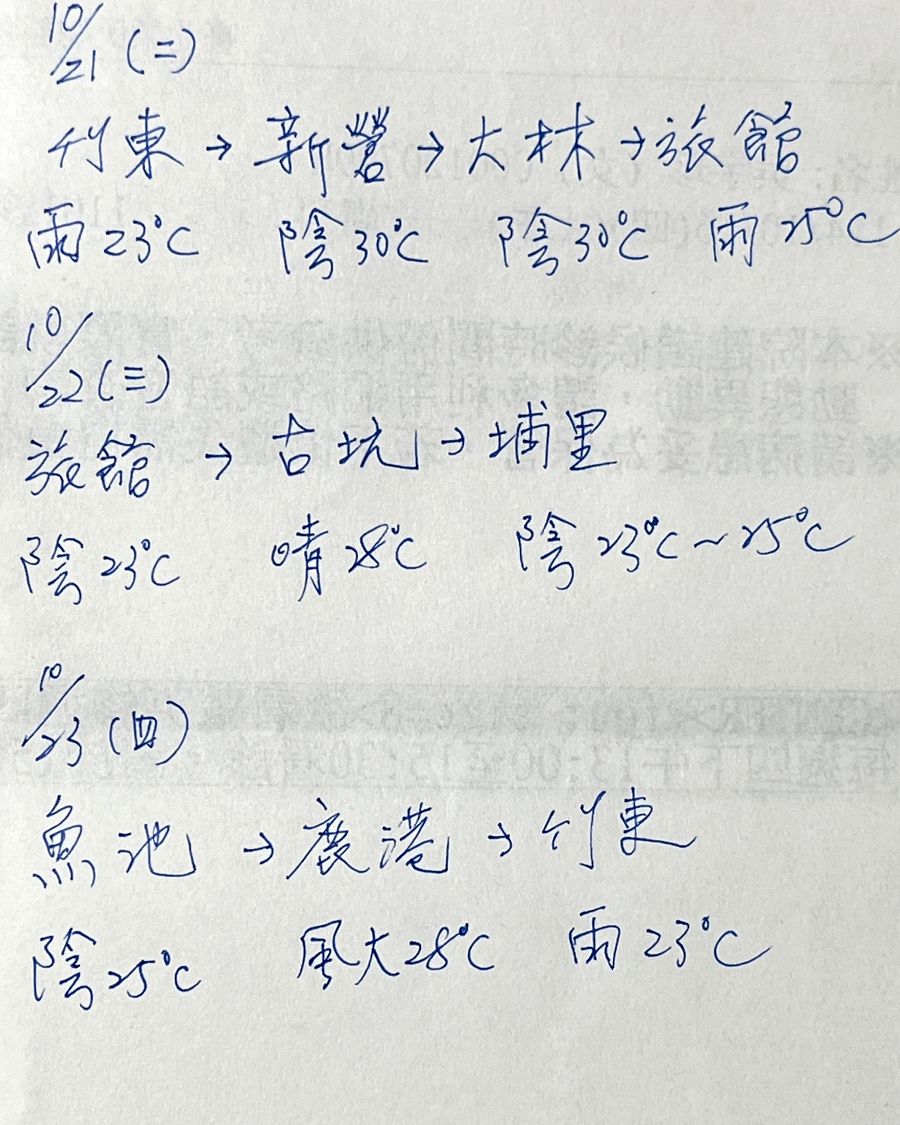 10/21(二)
竹東→新營→大林→旅館
雨23°C 陰30°C 陰30°C 雨25°C
10/22(三)
旅館→古坑→埔里
陰23°C 晴28°C 陰23°C~25°C
10/23(四)
魚池→鹿港→竹東
陰25°C 風大28°C 雨23°C